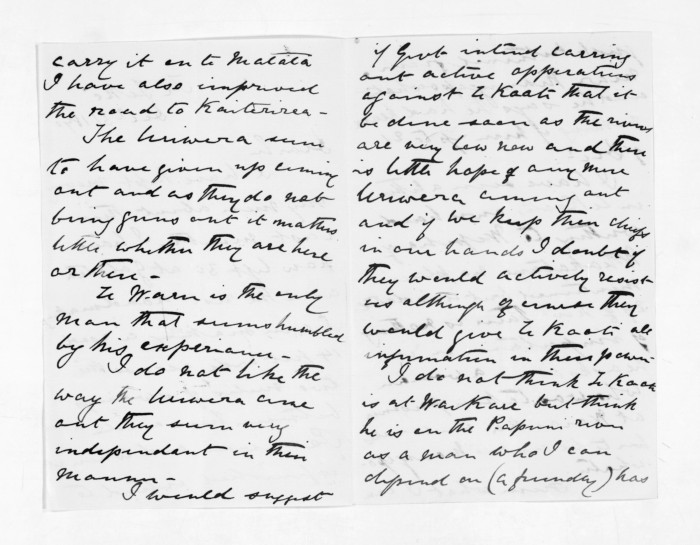 carry it on to Matata
I have also improved
the road to Kaiteriria -
The Uriwera seem
to have given up coming
out and as they do not
bring guns out it matters
little whether they are here
or there -
Te Waru is the only
man that seems humbled
by his experience -
I do not like the
way the Uriwera come
out they seem very
independant in their
manner -
I would suggest
if Govt intend carring
out active opperations
against Te Kooti that it
be done soon as the rivers
are very low now and there
is little hope of any more
Uriwera coming out
and if we keep their chiefs
in our hands I doubt if
they would actively resist
us although of course they
would give Te Kooti all
information in their power -
I do not think Te Kooti
is at Waikare but think
he is on the Papuni river
as a man who I can
depend on (a friendly) has